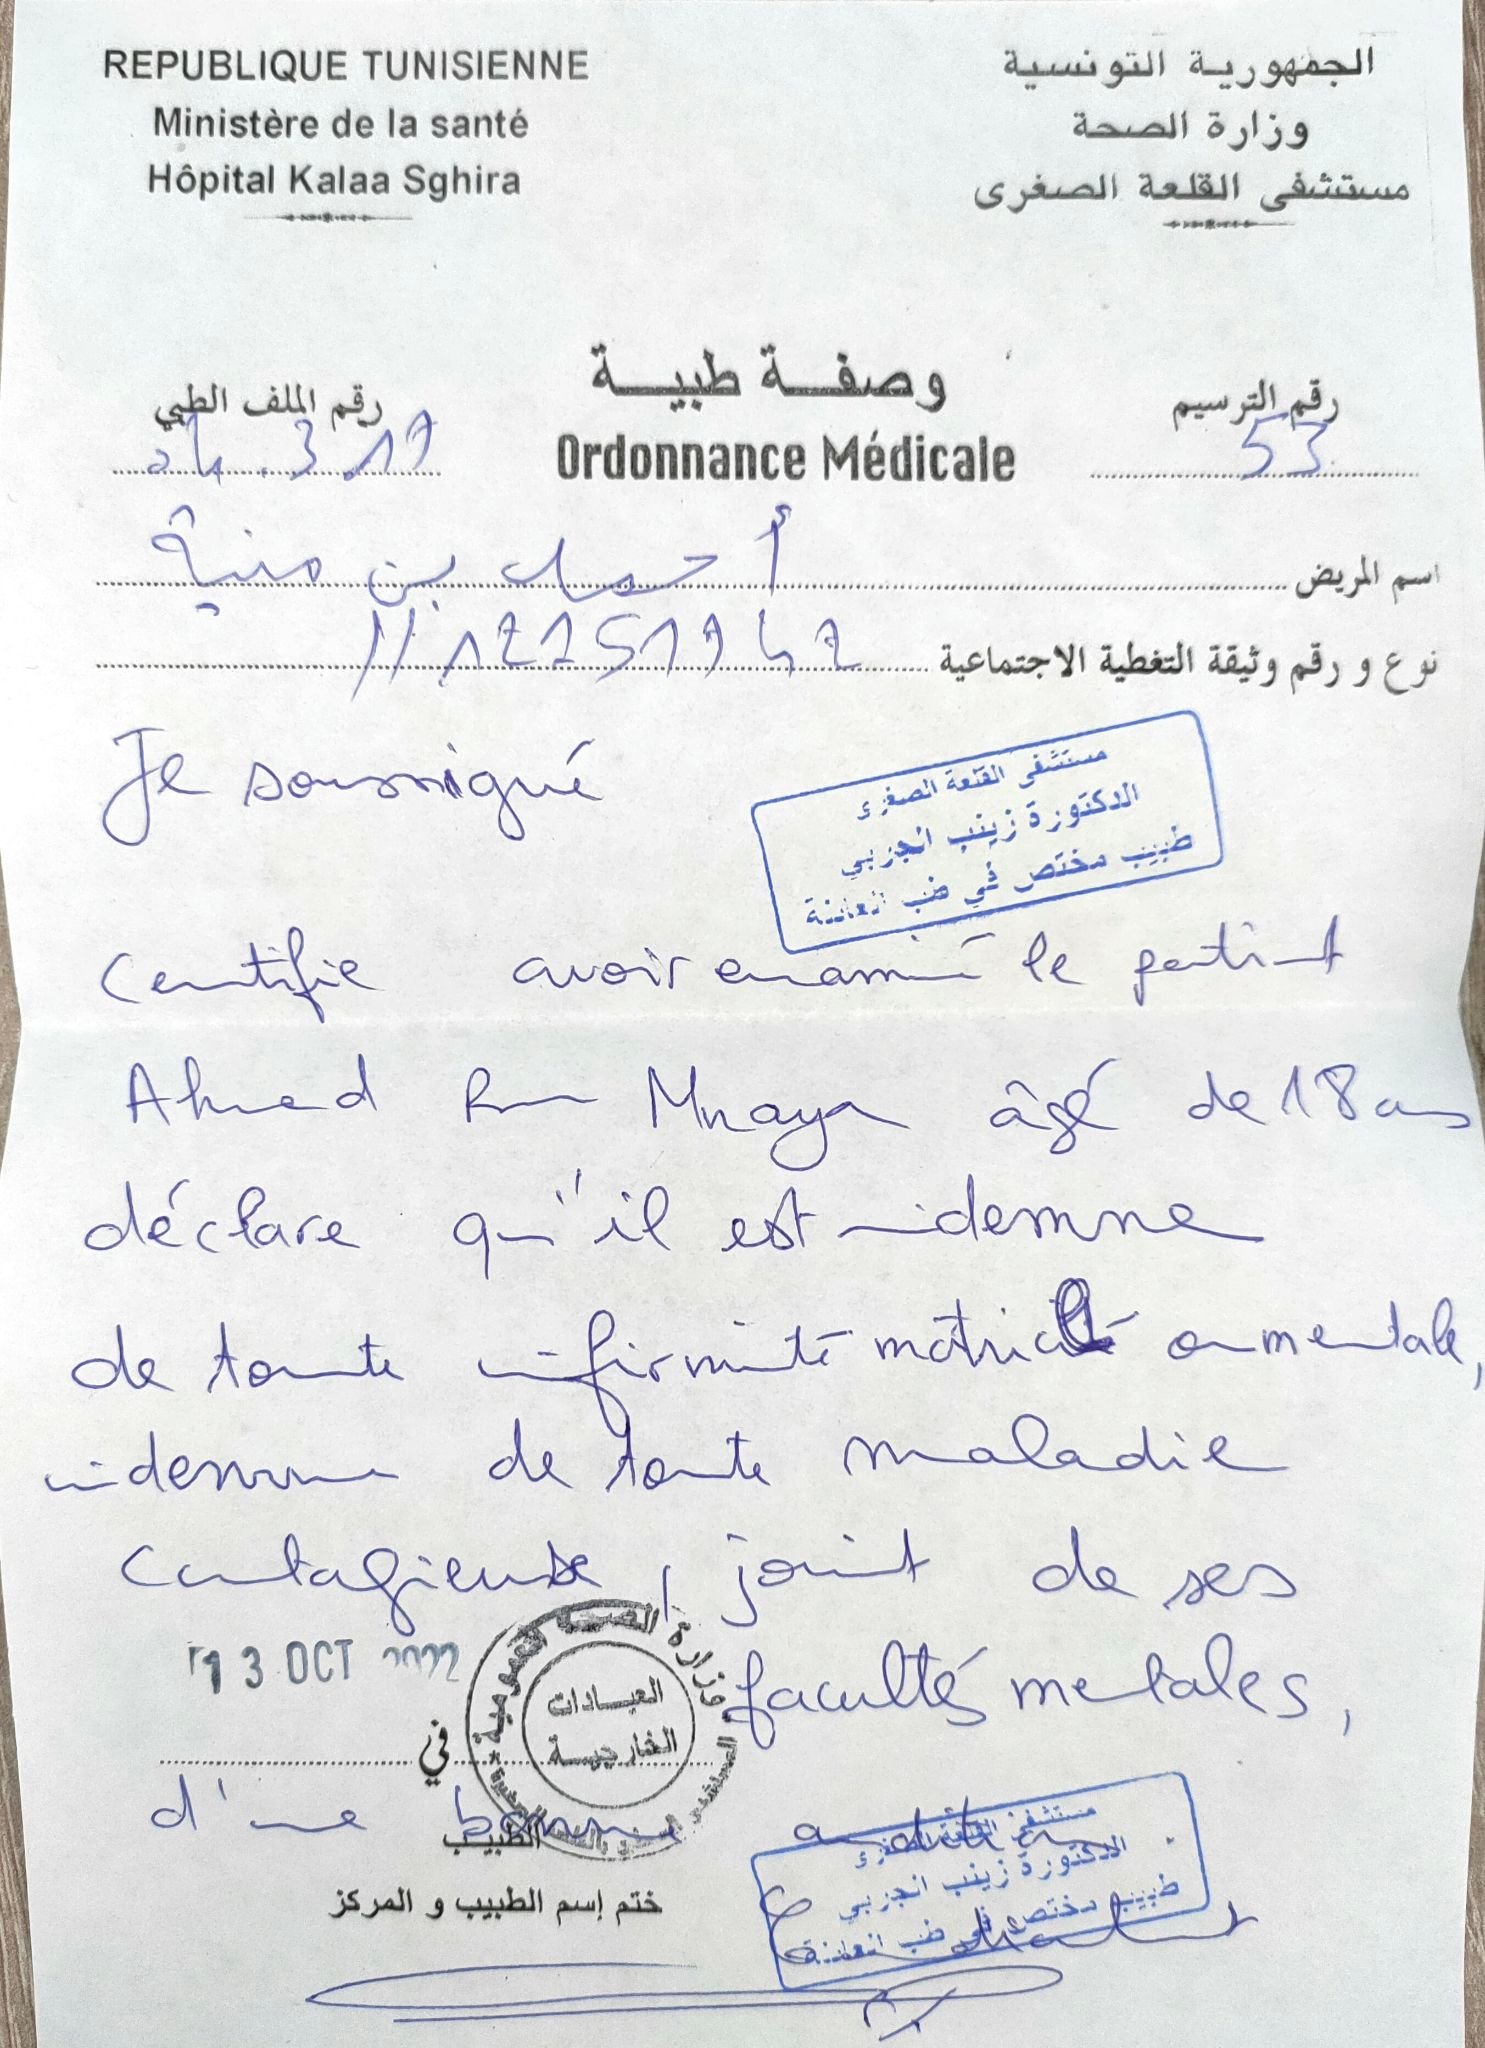 REPUBLIQUE TUNISIENNE
Ministère de la santé
Hôpital Kalaa Sghira
الجمهورية التونسية
وزارة الصحة
مستشفى القلعة الصغرى
وصفة طبية
Ordonnance Médicale
رقم الملف الطبي
رقم الترسيم
53
اسم المريض أحمد بن منية
نوع و رقم وثيقة التغطية الاجتماعية
Je soussigné
مستشفى القلعة الصغرى
الدكتورة زينب الجزيي
طبيب مختص في طب العائلة
Certifie avoir examiné le patient
Ahmed Ben Mnaya âgé de 18 ans
déclare qu'il est indemne
de toute infirmité ou mentale,
indemne de toute maladie
contagieuse, jouit de ses
facultés mentales,
13 OCT 2022
وزارة الصحة العمومية
العيادات
الخارجية
في
d'une bonne condition
الطبيب
ختم إسم الطبيب و المركز
مستشفى القلعة الصغرى
الدكتورة زينب الجزيي
طبيب مختص في طب العائلة